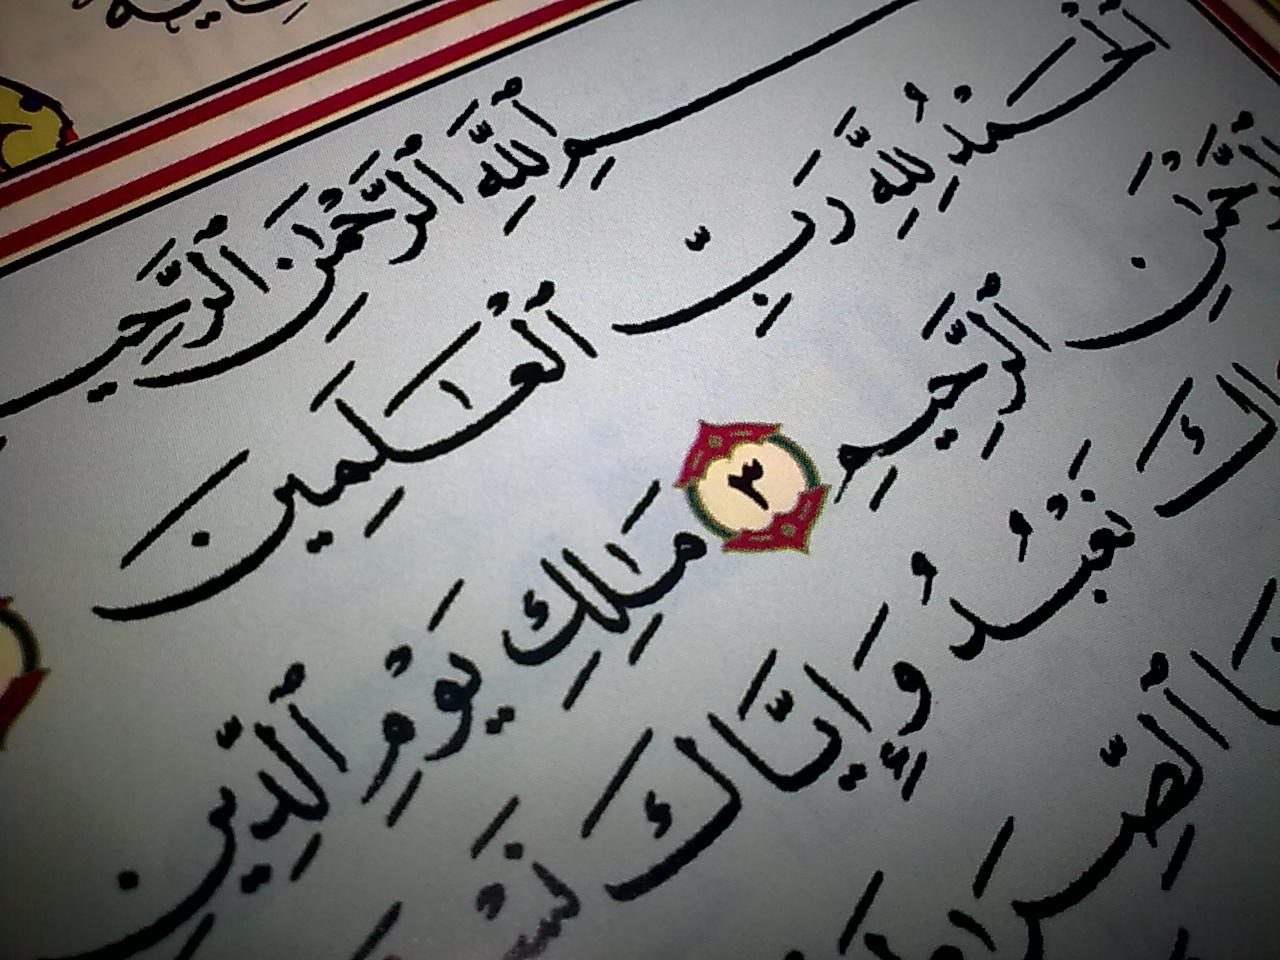 سمِ ٱللَّهِ ٱلرَّحْمَٰنِ ٱلرَّحِي
ٱلْحَمْدُ لِلَّهِ رَبِّ ٱلْعَٰلَمِينَ
ٱلرَّحْمَٰنِ ٱلرَّحِيمِ ٣ مَٰلِكِ يَوْمِ ٱلدِّينِ
اكَ نَعْبُدُ وَإِيَّاكَ نَسْ
نَا ٱلصِّرَٰطَ